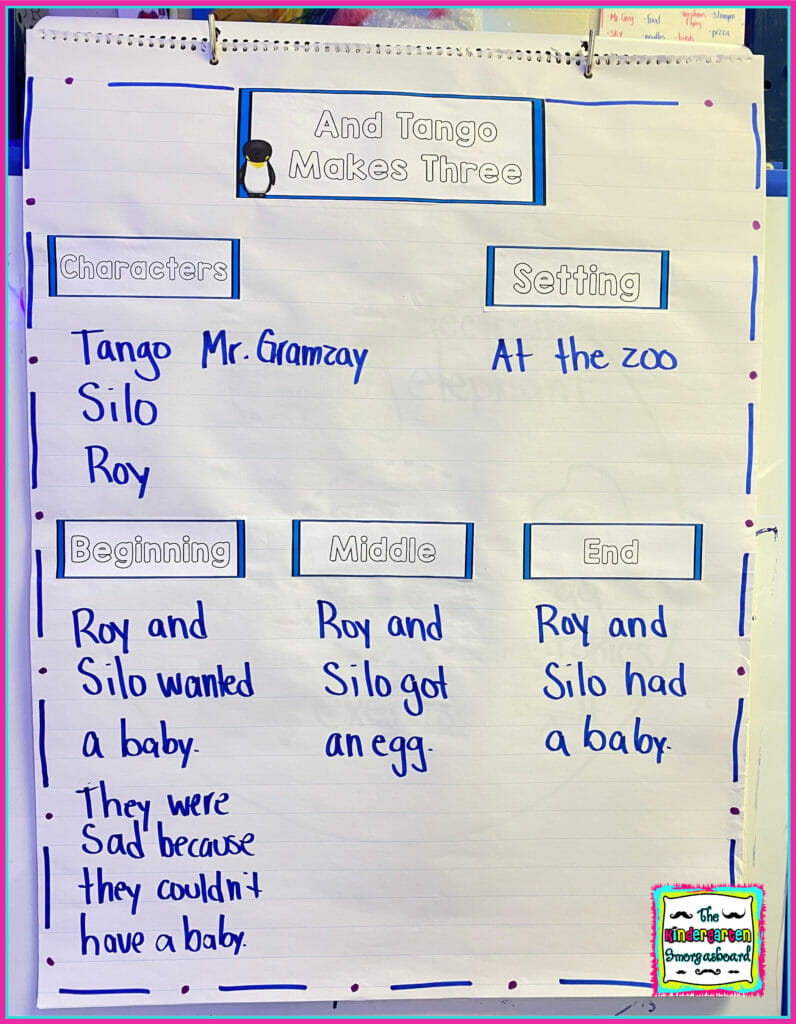 Mr. Gray -food
-sky -noodles -birds -pizza
And Tango
Makes Three
Characters
Setting
Tango Mr. Gramzay
At the zoo
Silo
Roy
Beginning
Roy and
Silo wanted
a baby.
They were
Sad because
they couldn't
have a baby.
Middle
Roy and
Silo got
an egg.
End
Roy and
Silo had
a baby.
The
Kindergarten
Smorgasboard